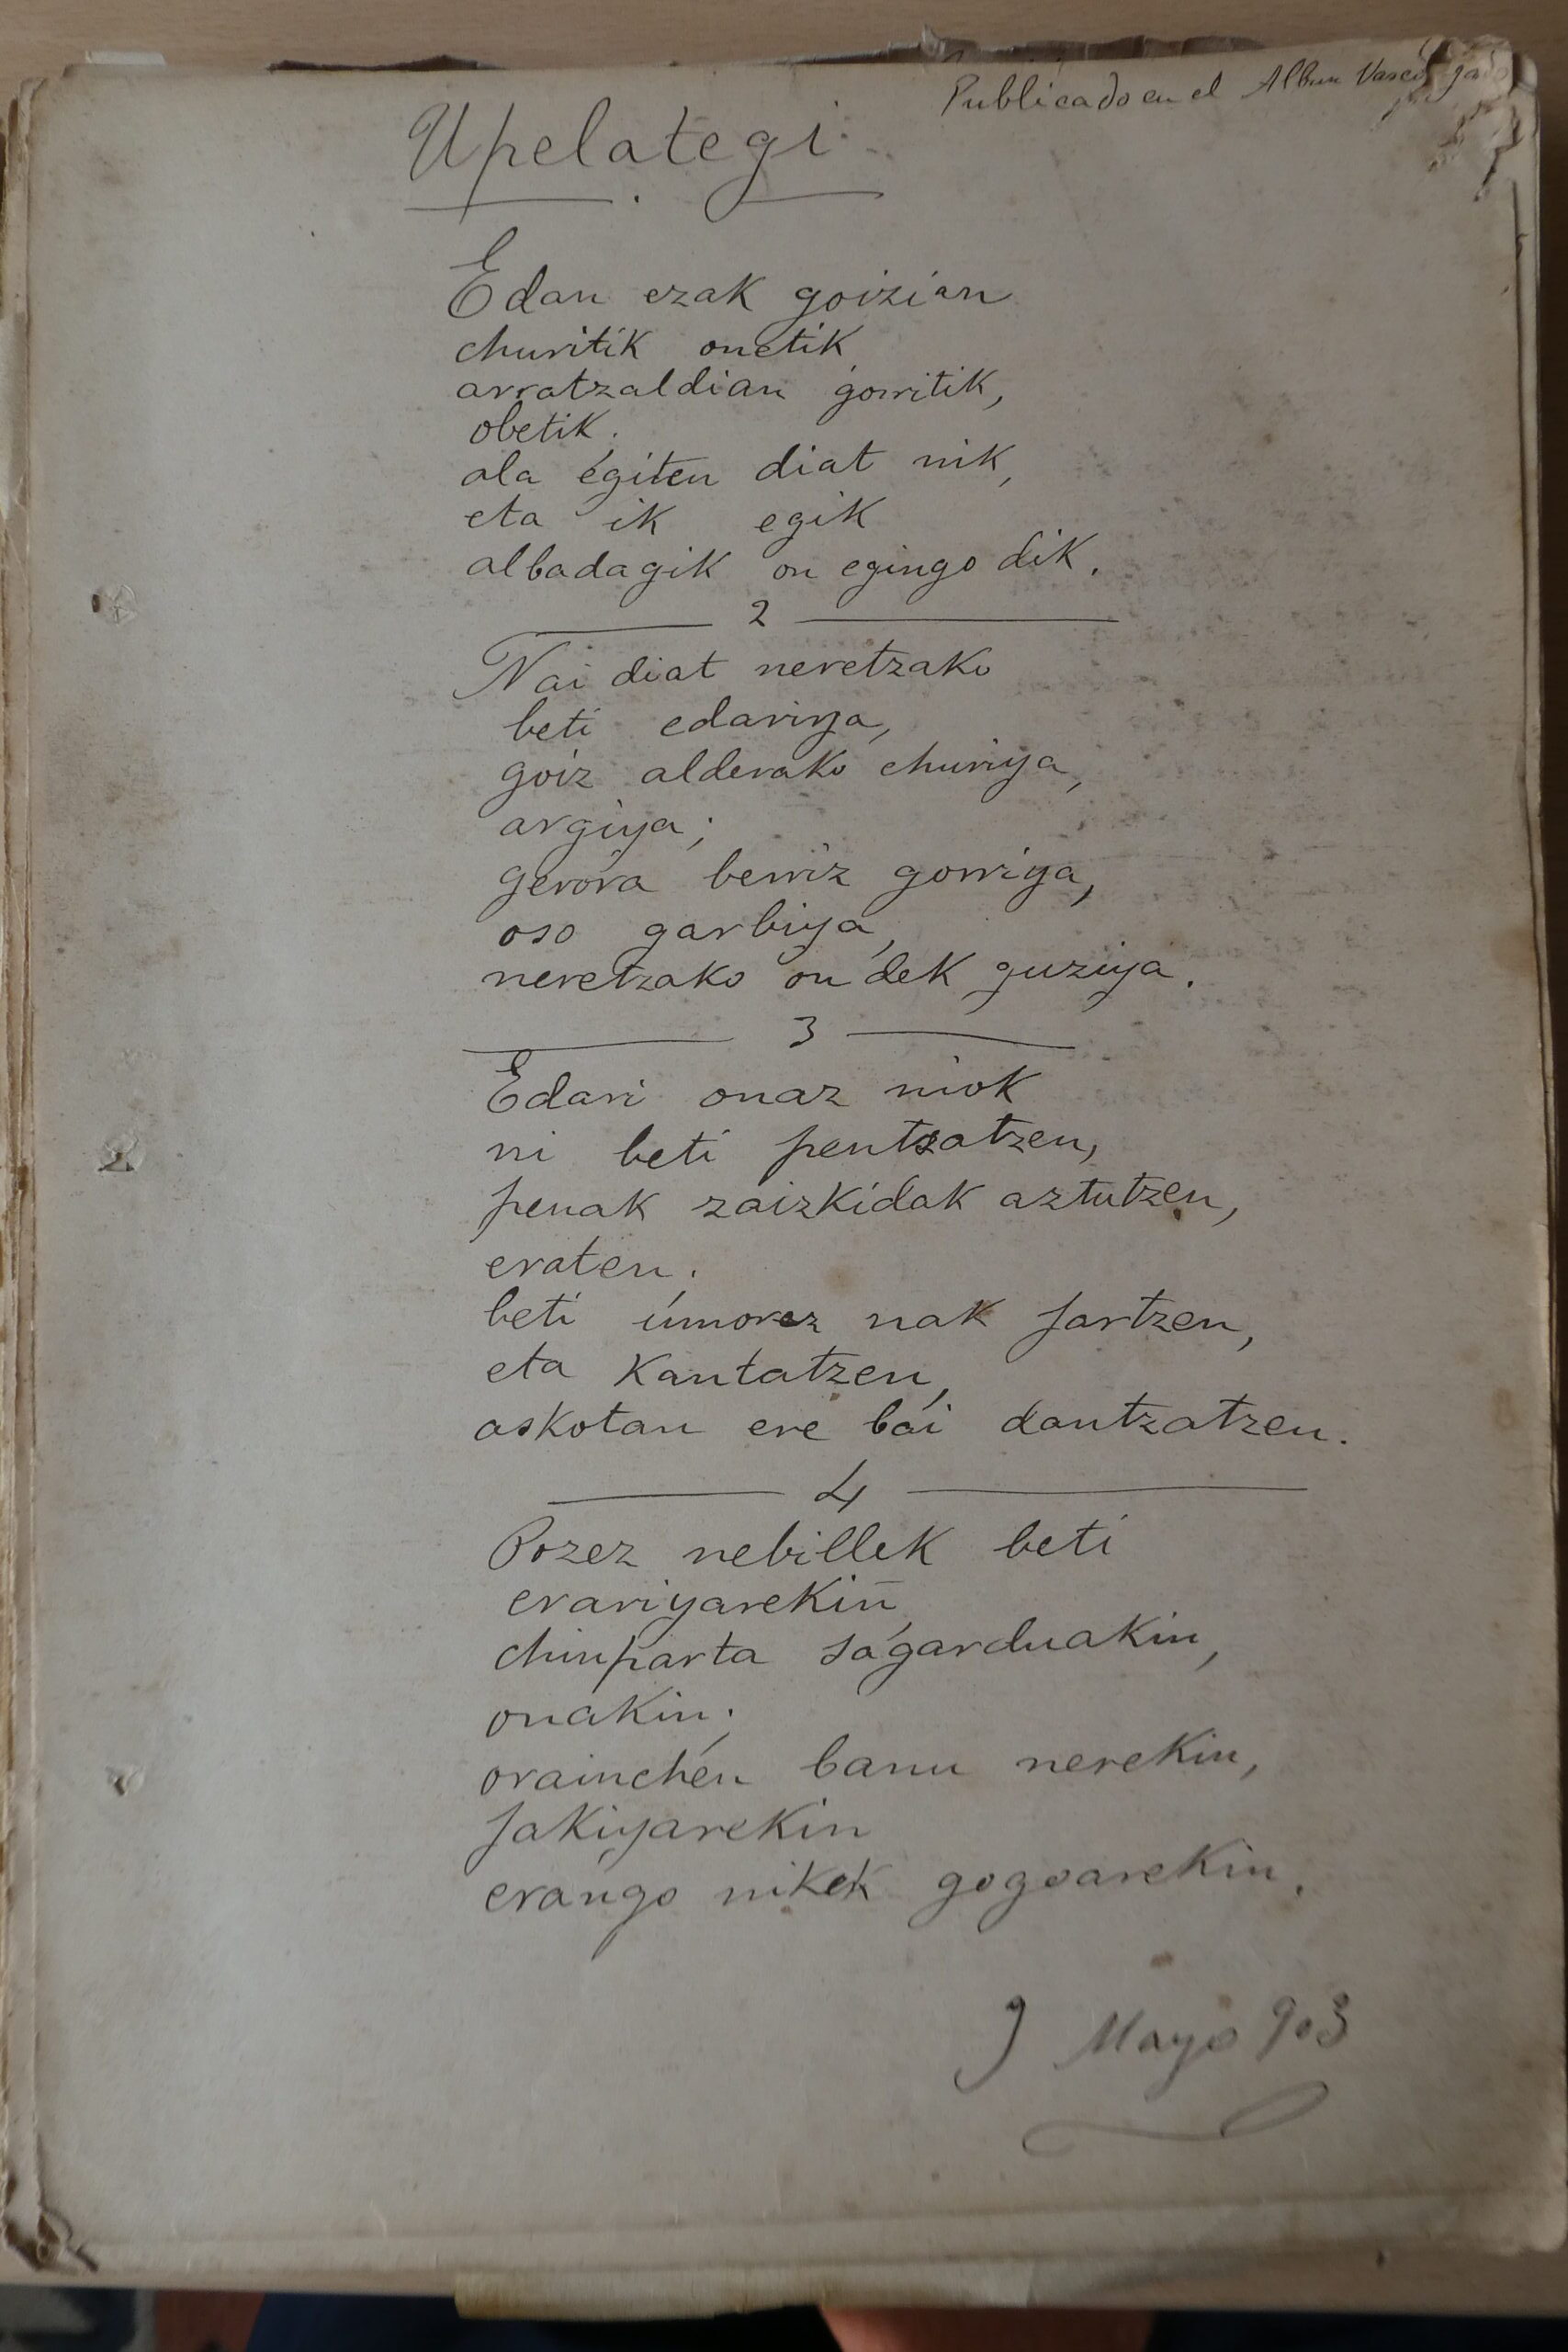 Publicado en el Album Vascongado
Upelategi
Edan ezak goizian
churitik onetik
arratzaldian gorritik,
obetik.
ala egiten diat nik,
eta ik egik
albadagik on egingo dik.
2
Nai diat neretzako
beti edariya,
goiz alderako churiya,
argiya;
gerora berriz gorriya,
oso garbiya,
neretzako on dek guziya.
3
Edari onaz niok
ni beti pentsatzen,
penak zaizkidak aztutzen,
eraten.
beti umorez nak jartzen,
eta kantatzen,
askotan ere bai dantzatzen.
4
Pozez nebillek beti
erariyarekin,
chinparta sagarduakin,
onakin;
orainchen banu nerekin,
jakiyarekin
erango nikek gogoarekin.
9 Mayo 903